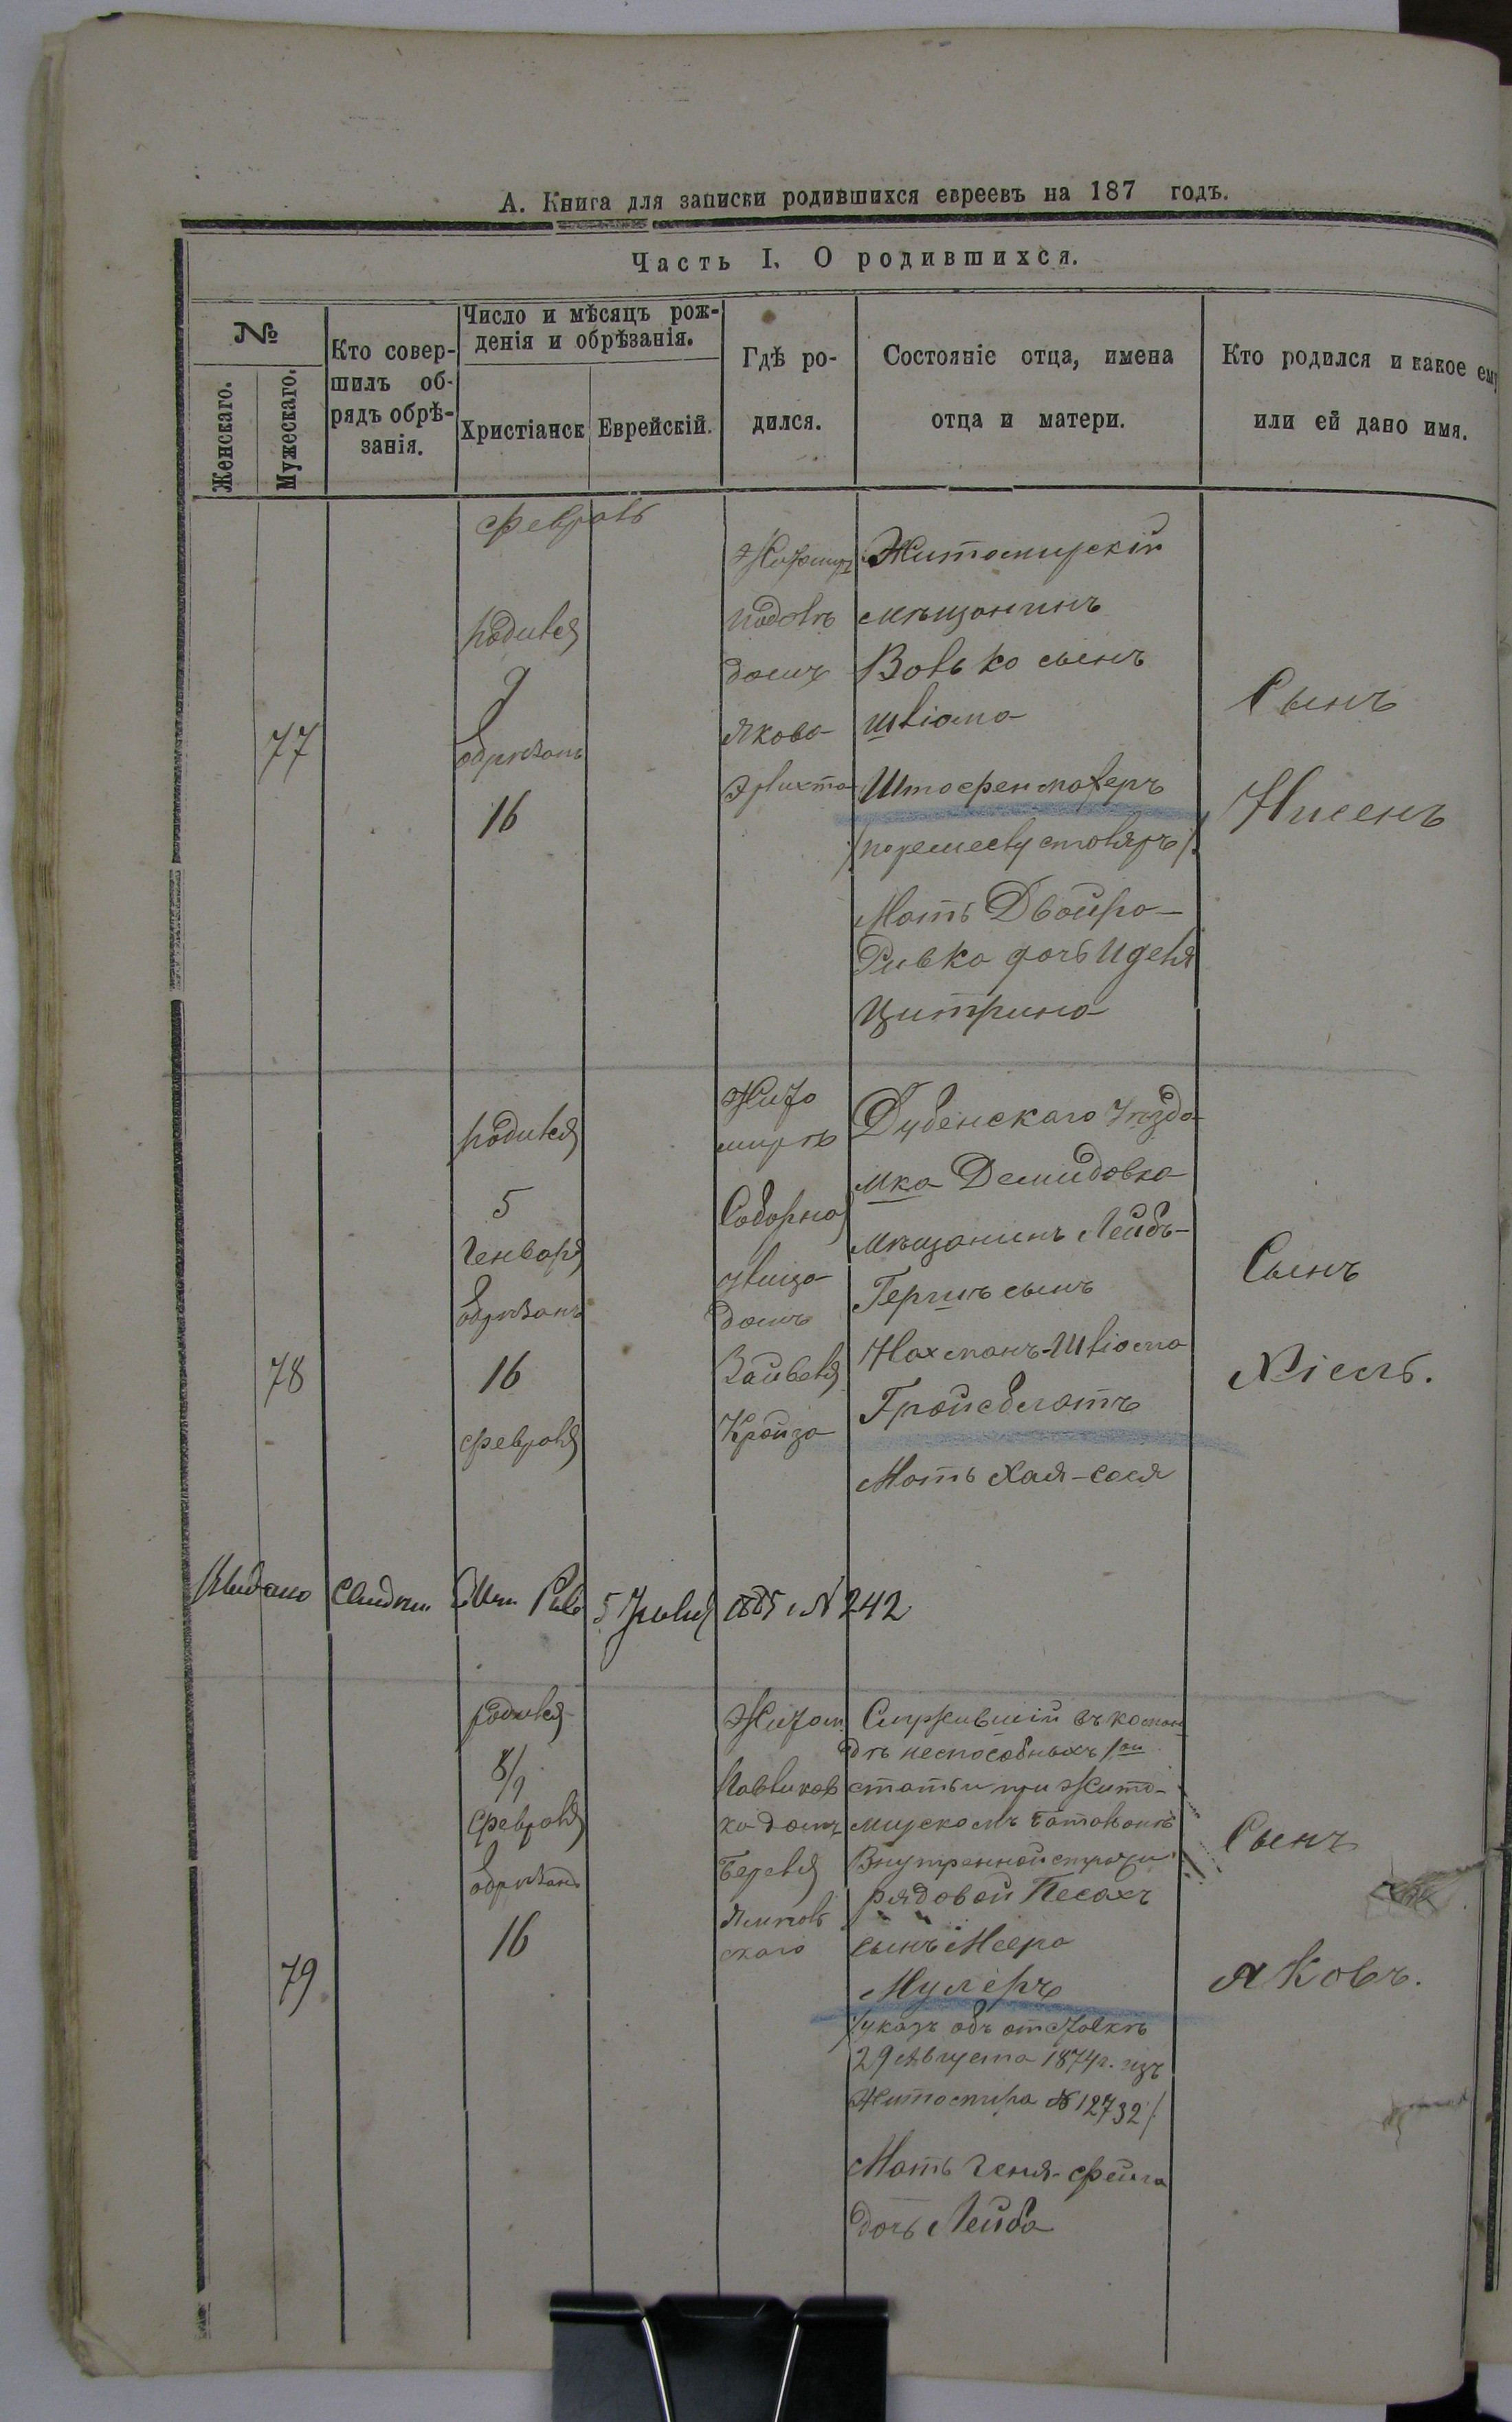 А. Книга для записки родившихся евреевъ на 187 годъ.
Часть I. О родившихся.
№
Женскаго.
Мужескаго.
Кто совер-
шилъ об-
рядъ обрѣ-
занія.
Число и мѣсяцъ рож-
денія и обрѣзанія.
Христіанск
Еврейскій.
Гдѣ ро-
дился.
Состояніе отца, имена
отца и матери.
Кто родился и какое ему
или ей дано имя.
77
Февраль
родился
9
обрѣзанъ
16
Житомиръ
домъ
Якова
Житомирскій
мѣщанинъ
Волько сынъ
Шліома
Штофенмахеръ
/по ремеслу столяръ/
Мать Двойра-
Ривка дочь Иделя
Цитрина
Сынъ
Нисенъ
78
родился
5
Генваря
обрѣзанъ
16
Февраля
Жито
миръ
Соборная
улица
домъ
Вайвеля
Кройза
Дубенскаго Уѣзда
мка Демидовка
мѣщанинъ Лейбъ-
Гершъ сынъ
Нахманъ-Шліома
Гройсблатъ
Мать Хая-Сося
Сынъ
Хіель.
Выдано 5 Іюля 1885 № 242
79
родился
8/9
Февраля
обрѣзанъ
16
Житом
ха домъ
Береля
скаго
Служившій въ коман
дѣ неспособныхъ 1ой
статьи при Жито-
мирскомъ баталіонѣ
Внутренной стражи
рядовой Песахъ
сынъ Меера
Мулеръ
/указъ объ отставкѣ
29 Августа 1874 г. изъ
Житомира № 12732/
Мать Геня-Фейга
дочь Лейба
Сынъ
Яковъ.